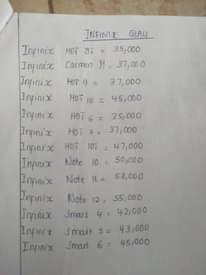 INFINIX GLASS
Infinix HOT 9i = 35,000
Infinix Camon 11 = 37,000
Infinix HOT 9 = 37,000
Infinix HOT 10 = 45,000
Infinix HOT 6 = 35,000
Infinix HOT 7 = 37,000
Infinix HOT 10i = 47,000
Infinix Note 10 = 50,000
Infinix Note 11 = 58,000
Infinix Note 12 = 55,000
Infinix Smart 4 = 42,000
Infinix Smart 5 = 43,000
Infinix Smart 6 = 45,000